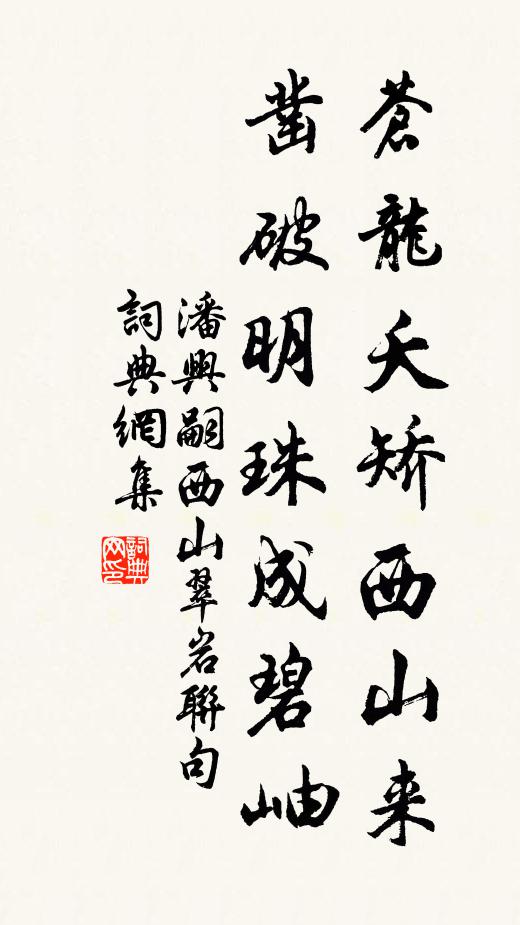 蒼龍夭矯西山来
凿破明珠成碧岫
潘興嗣西山翠岩聯句
詞典網集
詞典网印